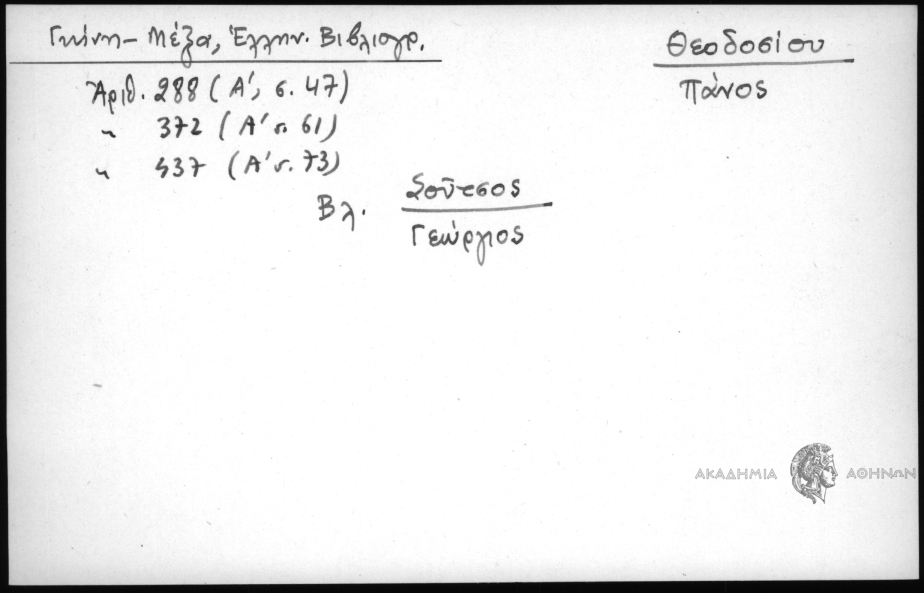 Γκίνη - Μέξα, Ἑλλην. Βιβλιογρ.
Θεοδοσίου
Πάνος
Ἀριθ. 288 (Α', σ. 47)
" 372 (Α' σ. 61)
" 437 (Α' σ. 73)
Βλ. Σοῦτσος
Γεώργιος
ΑΚΑΔΗΜΙΑ ΑΘΗΝΩΝ